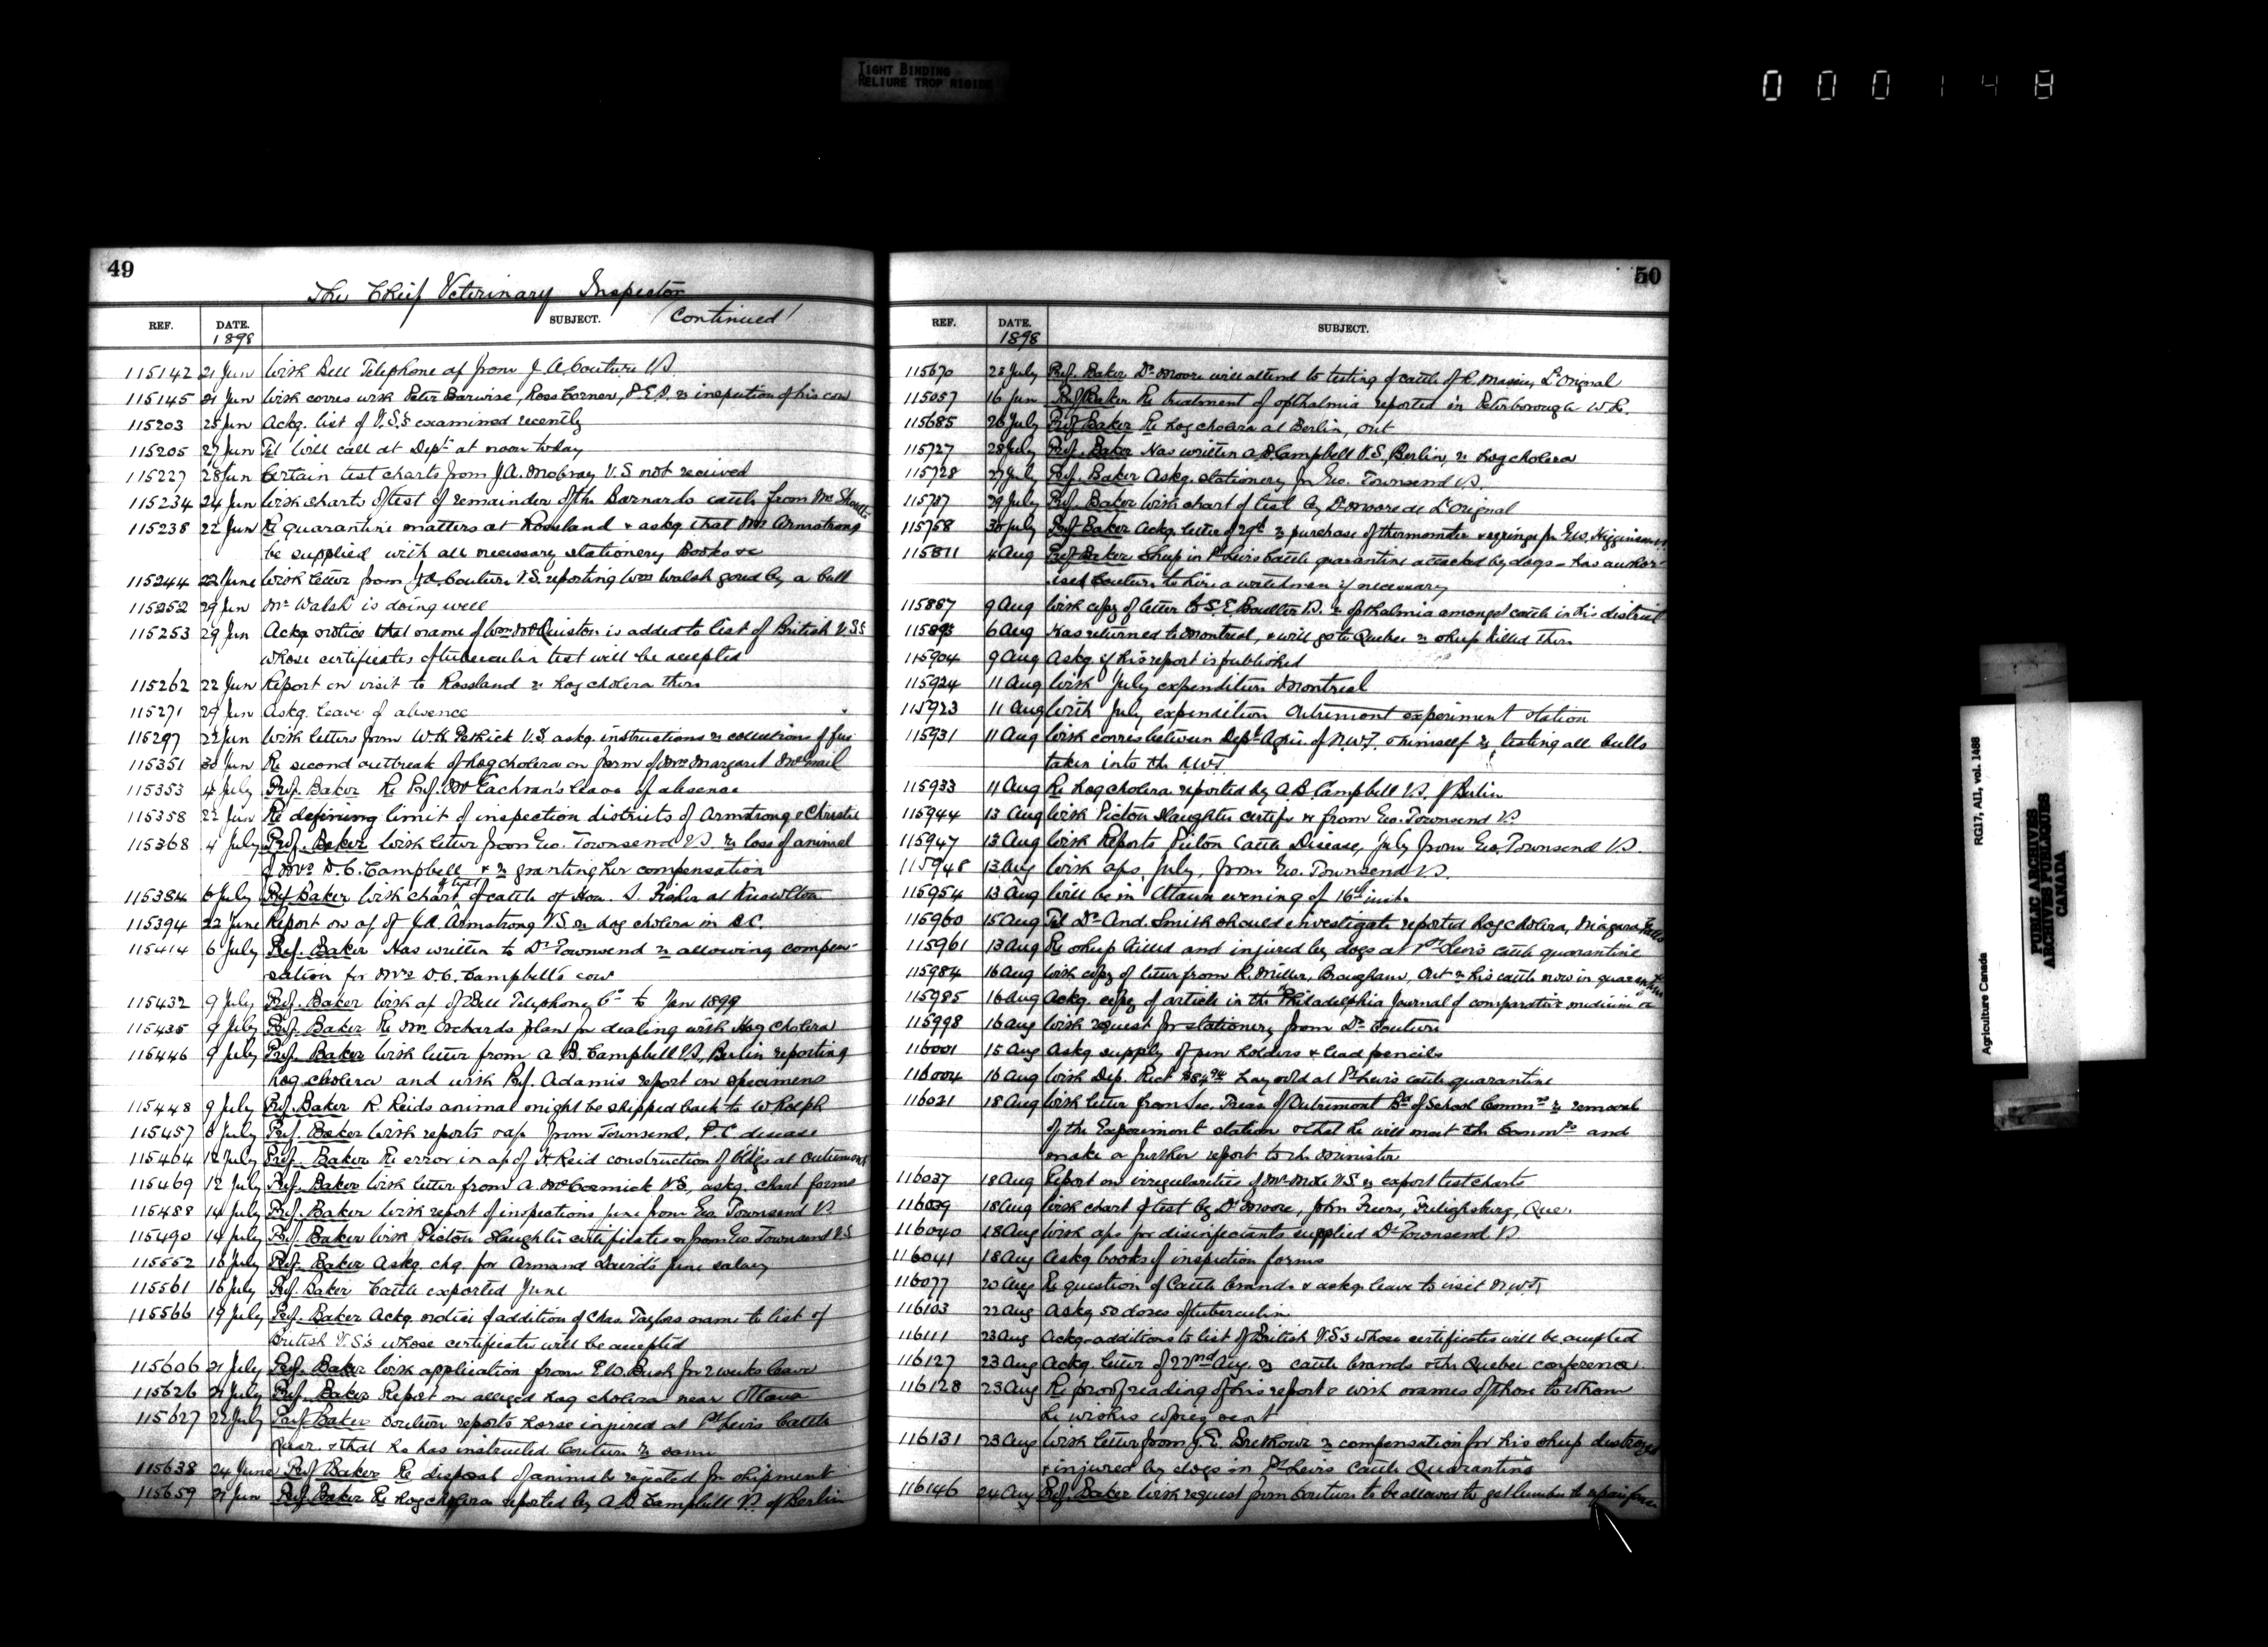 TIGHT BINDING
RELIURE TROP RIGIDE
000148
49
The Chief Veterinary Inspector
(Continued)
REF. DATE. SUBJECT.
1898
115142 21 Jun With Bell Telephone a/c from J. A. Couture V.S.
115145 21 Jun With corres with Peter Barwise, Ross Corner, P.E.I. re inspection of his cow
115203 25 Jun Ackg. list of V.S.'s examined recently
115205 27 Jun Tel Will call at Dept at noon today
115227 28 Jun Certain test charts from J.A. V.S. not received
115234 24 Jun With charts of test of remainder of the Barnardo cattle from Mr
115238 22 Jun Re quarantine matters at Rossland & askg that Mr Armstrong
be supplied with all necessary stationery Books &c
115244 22 June With letter from J.A. Couture V.S. reporting Wm Walsh gored by a bull
115252 29 Jun Mr Walsh is doing well
115253 29 Jun Ackg notice that name of Wm McQuiston is added to list of British V.S.s
whose certificates of tuberculin test will be accepted
115262 22 Jun Report on visit to Rossland re hog cholera there
115271 29 Jun Askg. leave of absence
115297 22 Jun With letters from W.H. Patrick V.S. askg. instructions re collection of fees
115351 30 Jun Re second outbreak of hog cholera on farm of Mrs Margaret
115353 4 July Prof. Baker Re Prof. McEachran's leave of absence
115358 22 Jun Re defining limit of inspection districts of Armstrong & Christie
115368 4 July Prof. Baker With letter from Geo. Townsend V.S. re loss of animal
of Mrs D.C. Campbell & re granting her compensation
115384 6 July Prof. Baker With chart of test of cattle of Hon. S. Fisher at Knowlton
115394 22 June Report on a/c of J.A. Armstrong V.S. re hog cholera in B.C.
115414 6 July Prof. Baker Has written to Dr Townsend re allowing compen-
sation for Mrs D.C. Campbell's cow
115432 9 July Prof. Baker With a/c of Bell Telephone Co to Jan 1899
115435 9 July Prof. Baker Re Mr. Orchards plan for dealing with Hog Cholera
115446 9 July Prof. Baker With letter from A. B. Campbell V.S, Berlin reporting
hog cholera and with Prof. Adamis report on specimens
115448 9 July Prof. Baker R. Reids animal might be shipped back to W Rolph
115457 8 July Prof. Baker With reports & a/c from Townsend, P.C. disease
115464 12 July Prof. Baker Re error in a/c of Reid construction of bldgs at Outremont
115469 12 July Prof. Baker With letter from A. McCormick V.S, askg. chart forms
115488 14 July Prof. Baker With report of inspections June from Geo. Townsend V.S
115490 14 July Prof. Baker With Picton Slaughter certificates from Geo. Townsend V.S
115552 18 July Prof. Baker Askg. chq. for Armand David's June salary
115561 16 July Prof. Baker Cattle exported June
115566 19 July Prof. Baker Ackg. notice of addition of Chas. Taylors name to list of
British V.S.'s whose certificates will be accepted
115606 21 July Prof. Baker With application from P.W. Bush for 2 weeks leave
115626 21 July Prof. Baker Report on alleged hog cholera near Ottawa
115627 22 July Prof. Baker Couture reports horse injured at Pt Levis Cattle
Quar. & that he has instructed Couture re same
115638 24 June Prof. Baker Re disposal of animals rejected for shipment
115659 21 Jun Prof. Baker Re hog cholera reported by A.B. Campbell V.S. of Berlin
50
REF. DATE. SUBJECT.
1898
115670 23 July Prof. Baker Dr. Moore will attend to testing of cattle of R. Massie, L'Orignal
115057 16 Jun Prof Baker Re treatment of opthalmia reported in Peterborough W.R.
115685 26 July Prof Baker Re hog cholera at Berlin, Ont
115727 28 July Prof. Baker Has written A.B. Campbell V.S., Berlin, re hog cholera
115728 27 July Prof. Baker Askg. stationery for Geo. Townsend V.S.
115737 29 July Prof. Baker With chart of test by Dr Moore at L'Orignal
115768 30 July Prof Baker Ackg letter of 29th re purchase of thermometer & syringe for Higginson V.S.
115811 4 Aug Prof. Baker Sheep in Pt Levis Cattle quarantine attacked by dogs - has author-
ised Couture to hire a watchman if necessary
115887 9 Aug With copy of letter to S.E. Boulter V.S. re opthalmia amongst cattle in his district
115893 6 Aug Has returned to Montreal, & will go to Quebec re sheep killed there
115904 9 Aug Askg if his report is published
115924 11 Aug With July expenditure Montreal
115923 11 Aug With July expenditure Outremont experiment station
115931 11 Aug With corres between Dept Agric. of N.W.T. & himself re testing all bulls
taken into the N.W.T.
115933 11 Aug Re hog cholera reported by A.B. Campbell V.S. of Berlin
115944 13 Aug With Picton Slaughter certifs from Geo. Townsend V.S.
115947 13 Aug With Reports Picton Cattle Disease, July from Geo. Townsend V.S.
115948 13 Aug With a/cs, July, from Geo. Townsend V.S.
115954 13 Aug Will be in Ottawa evening of 16th inst.
115960 15 Aug Tel Dr. And. Smith should investigate reported hog cholera, Niagara Falls
115961 13 Aug Re sheep killed and injured by dogs at Pt Levis cattle quarantine
115984 16 Aug With copy of letter from R. Miller, Brougham, Ont re his cattle now in quarantine
115985 16 Aug Ackg. copy of article in the Philadelphia Journal of comparative medicine
115998 16 Aug With request for stationery from Dr Couture
116001 15 Aug Askg supply of pen holders & lead pencils
116004 16 Aug With Dep. Rect hay sold at Pt Levis cattle quarantine
116021 18 Aug With letter from Sec. Treas of Outremont Bd of School Commrs re removal
of the Experiment station & that he will meet the Commrs and
make a further report to the Minister
116037 18 Aug Report on irregularities of Mr V.S. re export test charts
116039 18 Aug With chart of test by Dr Moore, John Freers, Frelighsburg, Que.
116040 18 Aug With a/cs for disinfectants supplied Dr Townsend V.S
116041 18 Aug Askg books of inspection forms
116077 20 Aug Re question of Cattle brands & askg leave to visit N.W.T.
116103 22 Aug Askg 50 doses of tuberculin
116111 23 Aug Ackg. additions to list of British V.S.'s whose certificates will be accepted
116127 23 Aug Ackg. letter of 22nd Aug. re cattle brands & the Quebec conference
116128 23 Aug Re proof reading of his report & with names of those to whom
he wishes copies sent
116131 23 Aug With letter from J.E. re compensation for his sheep destroyed
& injured by dogs in Pt Levis Cattle Quarantine
116146 24 Aug Prof. Baker With request from Couture to be allowed to get lumber to repair fence
Agriculture Canada RG17, AII, vol. 1488
PUBLIC ARCHIVES
ARCHIVES PUBLIQUES
CANADA